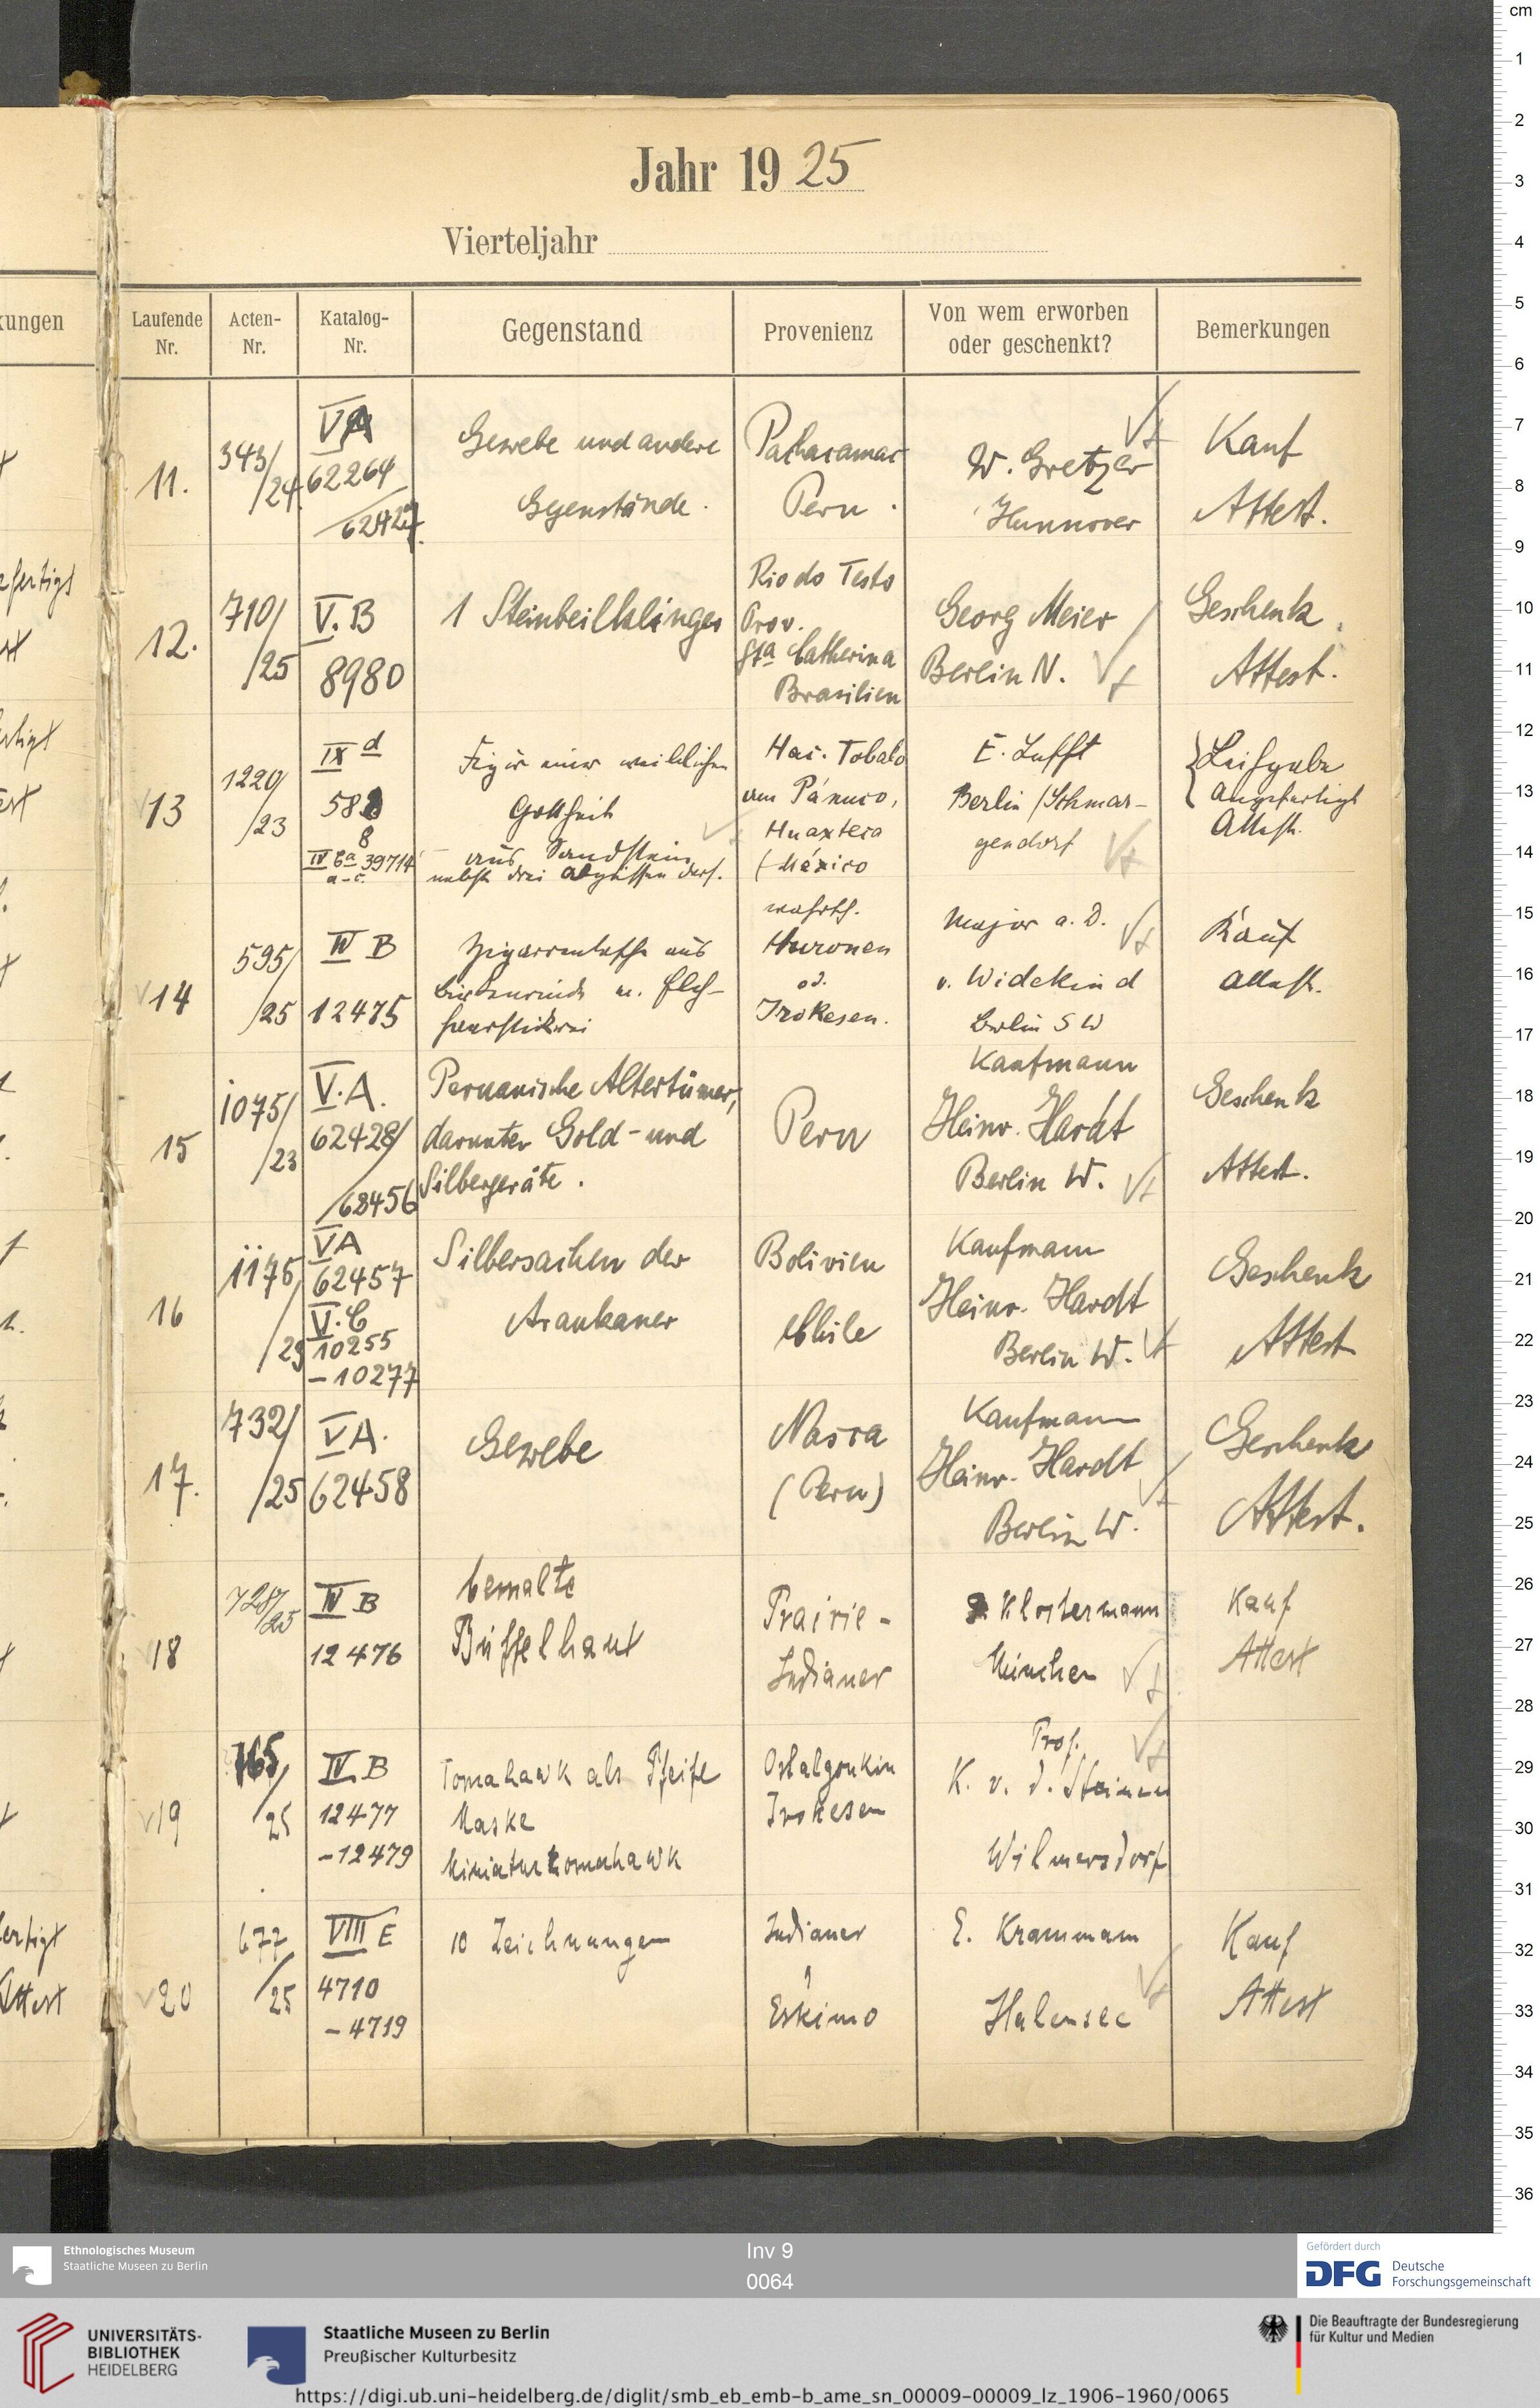 Jahr 1925
Vierteljahr
kungen
Laufende Nr.
Acten-Nr.
Katalog-Nr.
Gegenstand
Provenienz
Von wem erworben oder geschenkt?
Bemerkungen
11.
343/
/24.
VA
62264
/62427.
Gewebe und andere
Gegenstände.
Pachacamac
Peru.
W. Gretzer
Hannover
Kauf
Attest.
12.
710/
/25
V.B
8980
1 Steinbeilklinge
Rio do Testo
Prov.
Sta Catherina
Brasilien
Georg Meier
Berlin N.
Geschenk
Attest.
13
1220/
/23
IX d
588
IV Ca 39714
a-c
Figur einer weiblichen
Gottheit
aus Sandstein
nebst drei Abgüssen ders.
Hac. Tobalo
am Pánuco,
Huaxteca
(México
E. Lufft
Berlin/Schmar-
gendorf
Leihgabe
Ausgefertigt
Attest.
14
595/
/25
IV B
12475
Zigarrentasche aus
Birkenrinde m. Elch-
haarstickerei
wahrsch.
Huronen
od.
Irokesen.
Major a. D.
v. Widekind
Berlin SW
Kauf
Attest.
15
1075/
/23
V.A.
62428/
/62456
Peruanische Altertümer,
darunter Gold- und
Silbergeräte.
Peru
Kaufmann
Heinr. Hardt
Berlin W.
Geschenk
Attest.
16
1175
/23
VA
62457
V.C
10255
-10277
Silbersachen der
Araukaner
Bolivien
Chile
Kaufmann
Heinr. Hardt
Berlin W.
Geschenk
Attest
17.
732/
/25
VA.
62458
Gewebe
Nasca
(Peru)
Kaufmann
Heinr. Hardt
Berlin W.
Geschenk
Attest.
18
728/25
IV B
12476
bemalte
Büffelhaut
Prairie-
Indianer
Klostermann
München
Kauf
Attest
19
765/
25
IV B
12477
-12479
Tomahawk als Pfeife
Maske
Miniaturtomahawk
Ostalgonkin
Irokesen
Prof.
K. v. d. Steinen
Wilmersdorf
20
677
/25
VIII E
4710
-4719
10 Zeichnungen
Indianer
Eskimo
E. Krammann
Halensee
Kauf
Attest
cm
1
2
3
4
5
6
7
8
9
10
11
12
13
14
15
16
17
18
19
20
21
22
23
24
25
26
27
28
29
30
31
32
33
34
35
36
Ethnologisches Museum
Staatliche Museen zu Berlin
Inv 9
0064
Gefördert durch
DFG Deutsche
Forschungsgemeinschaft
UNIVERSITÄTS-
BIBLIOTHEK
HEIDELBERG
Staatliche Museen zu Berlin
Preußischer Kulturbesitz
Die Beauftragte der Bundesregierung
für Kultur und Medien
https://digi.ub.uni-heidelberg.de/diglit/smb_eb_emb-b_ame_sn_00009-00009_lz_1906-1960/0065